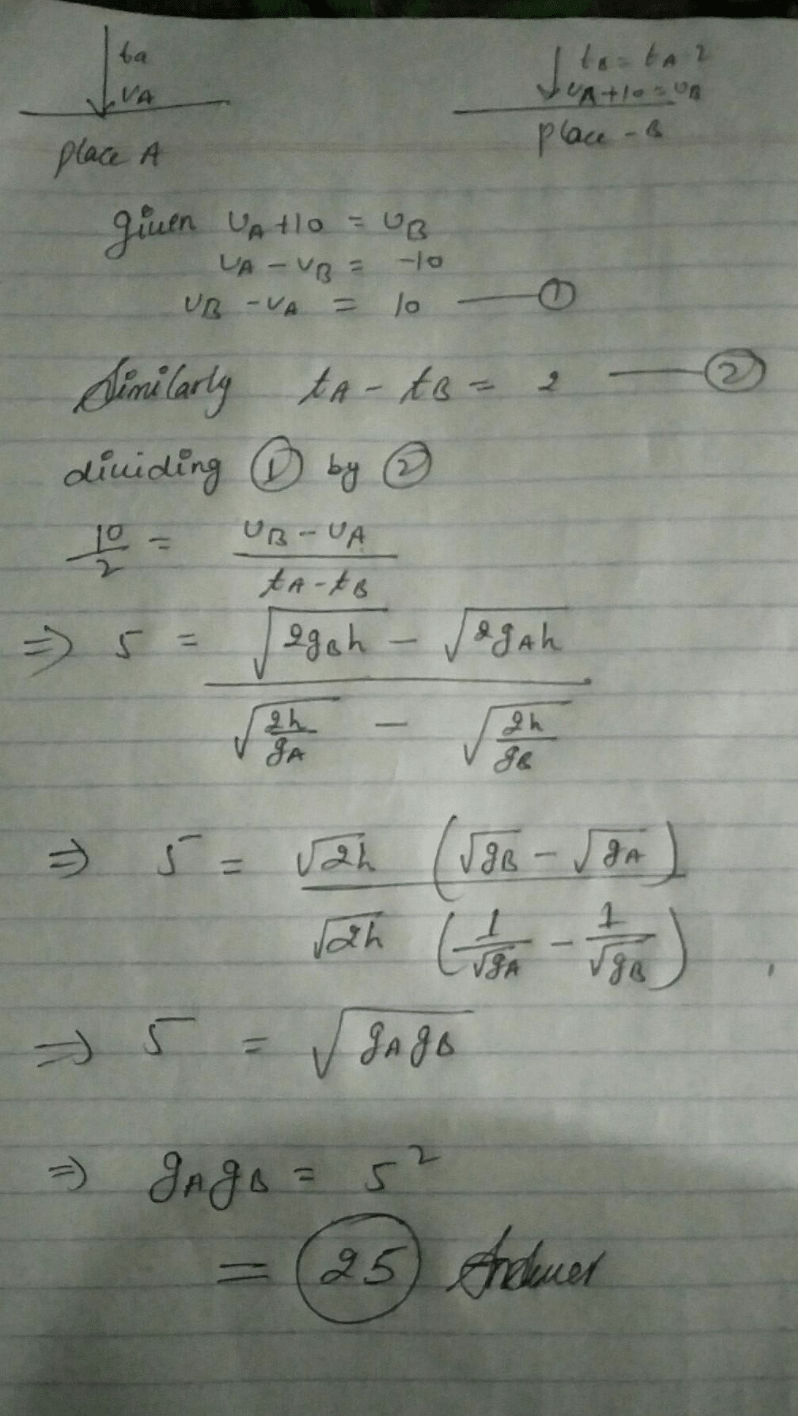 ta
VA
place A
tB = tA 2
VA+10 = VB
place - B
given VA +10 = VB
VA - VB = -10
VB - VA = 10 — ①
Similarly tA - tB = 2 — ②
dividing ① by ②
10/2 = (VB - VA)/(tA - tB)
⇒ 5 = (√(2gBh) - √(2gAh))/(√(2h/gA) - √(2h/gB))
⇒ 5 = √2h (√gB - √gA)/√2h (1/√gA - 1/√gB)
⇒ 5 = √(gAgB)
⇒ gAgB = 5²
= 25 Answer